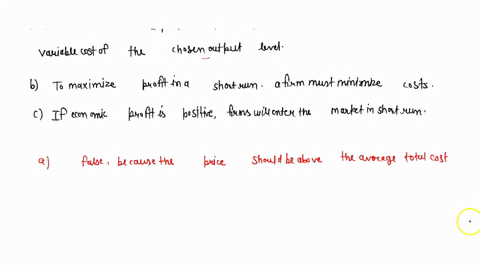 variable cost of the chosen output level.
b) To maximize profit in a short run. a firm must minimize costs.
c) If economic profit is positive, firms will enter the market in short run.
a) false, because the price should be above the average total cost